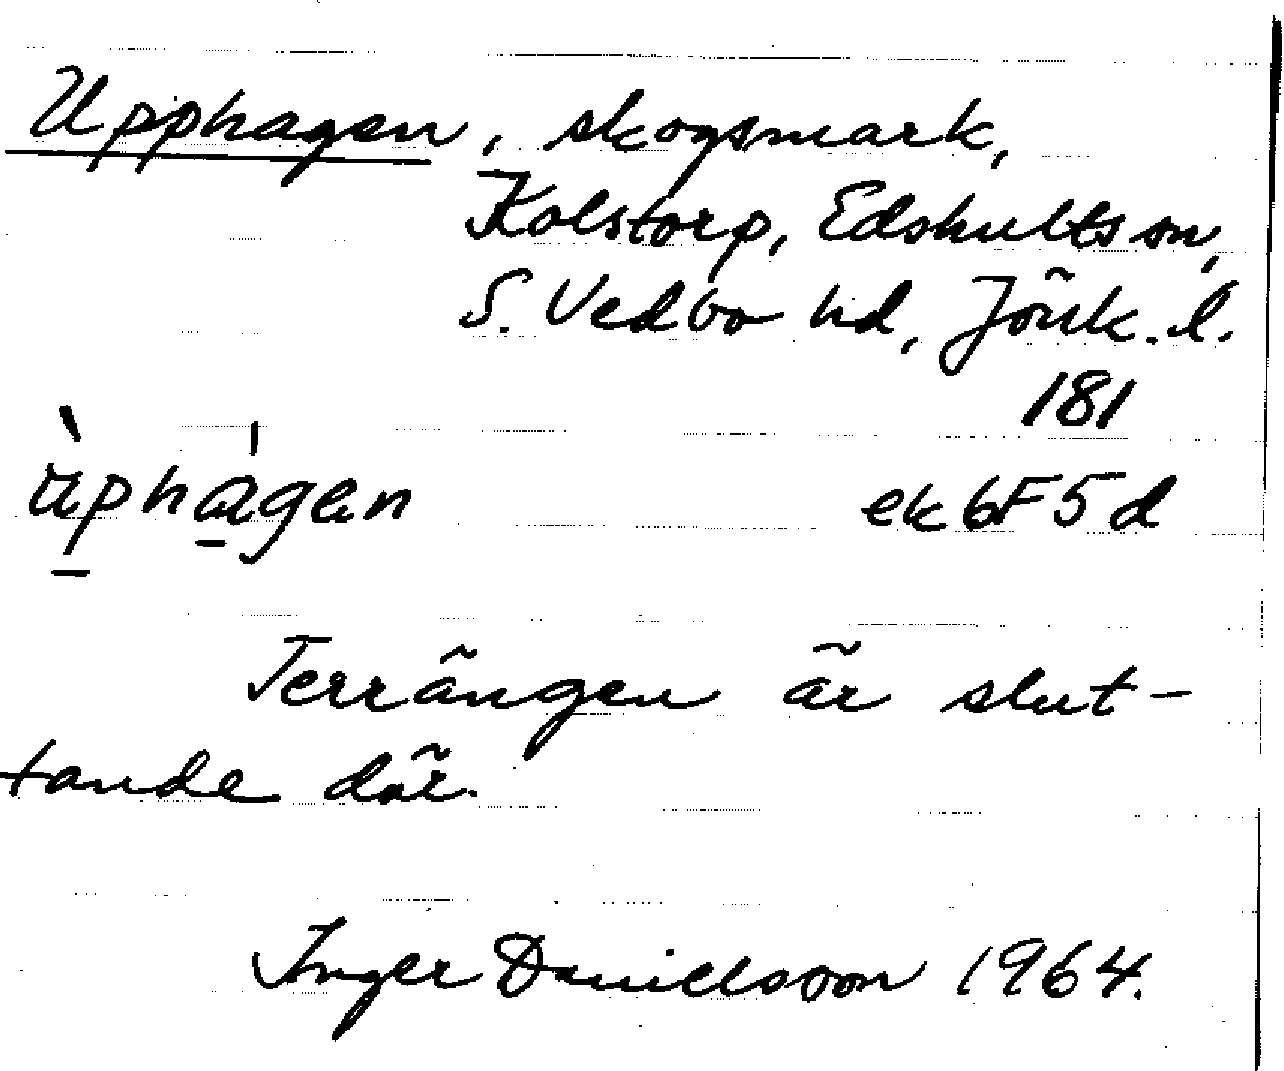 Upphagen, skogsmark,
Kolstorp, Edshults sn,
S. Vedbo hd, Jönk. l.
181
ùphágen ek 6F5d
Terrängen är slut-
tande där.
Inger Danielsson 1964.